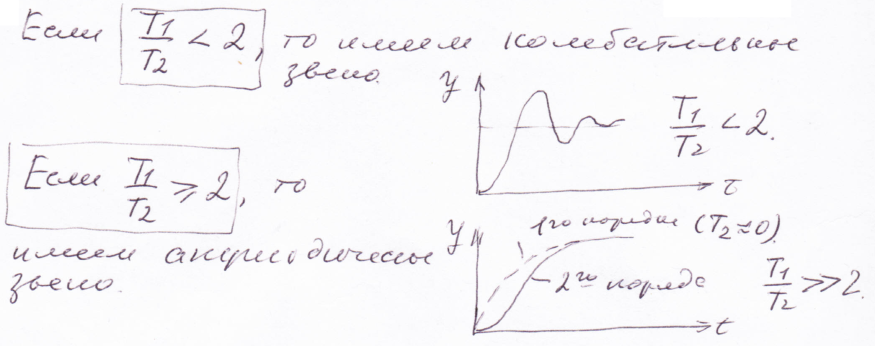 Если T1/T2 < 2, то имеем колебательное
звено.
y
T1/T2 < 2.
τ
Если T1/T2 ⩾ 2, то
имеем апериодическое
звено.
y
1го порядка (T2≈0).
2го порядка
T1/T2 >> 2.
t